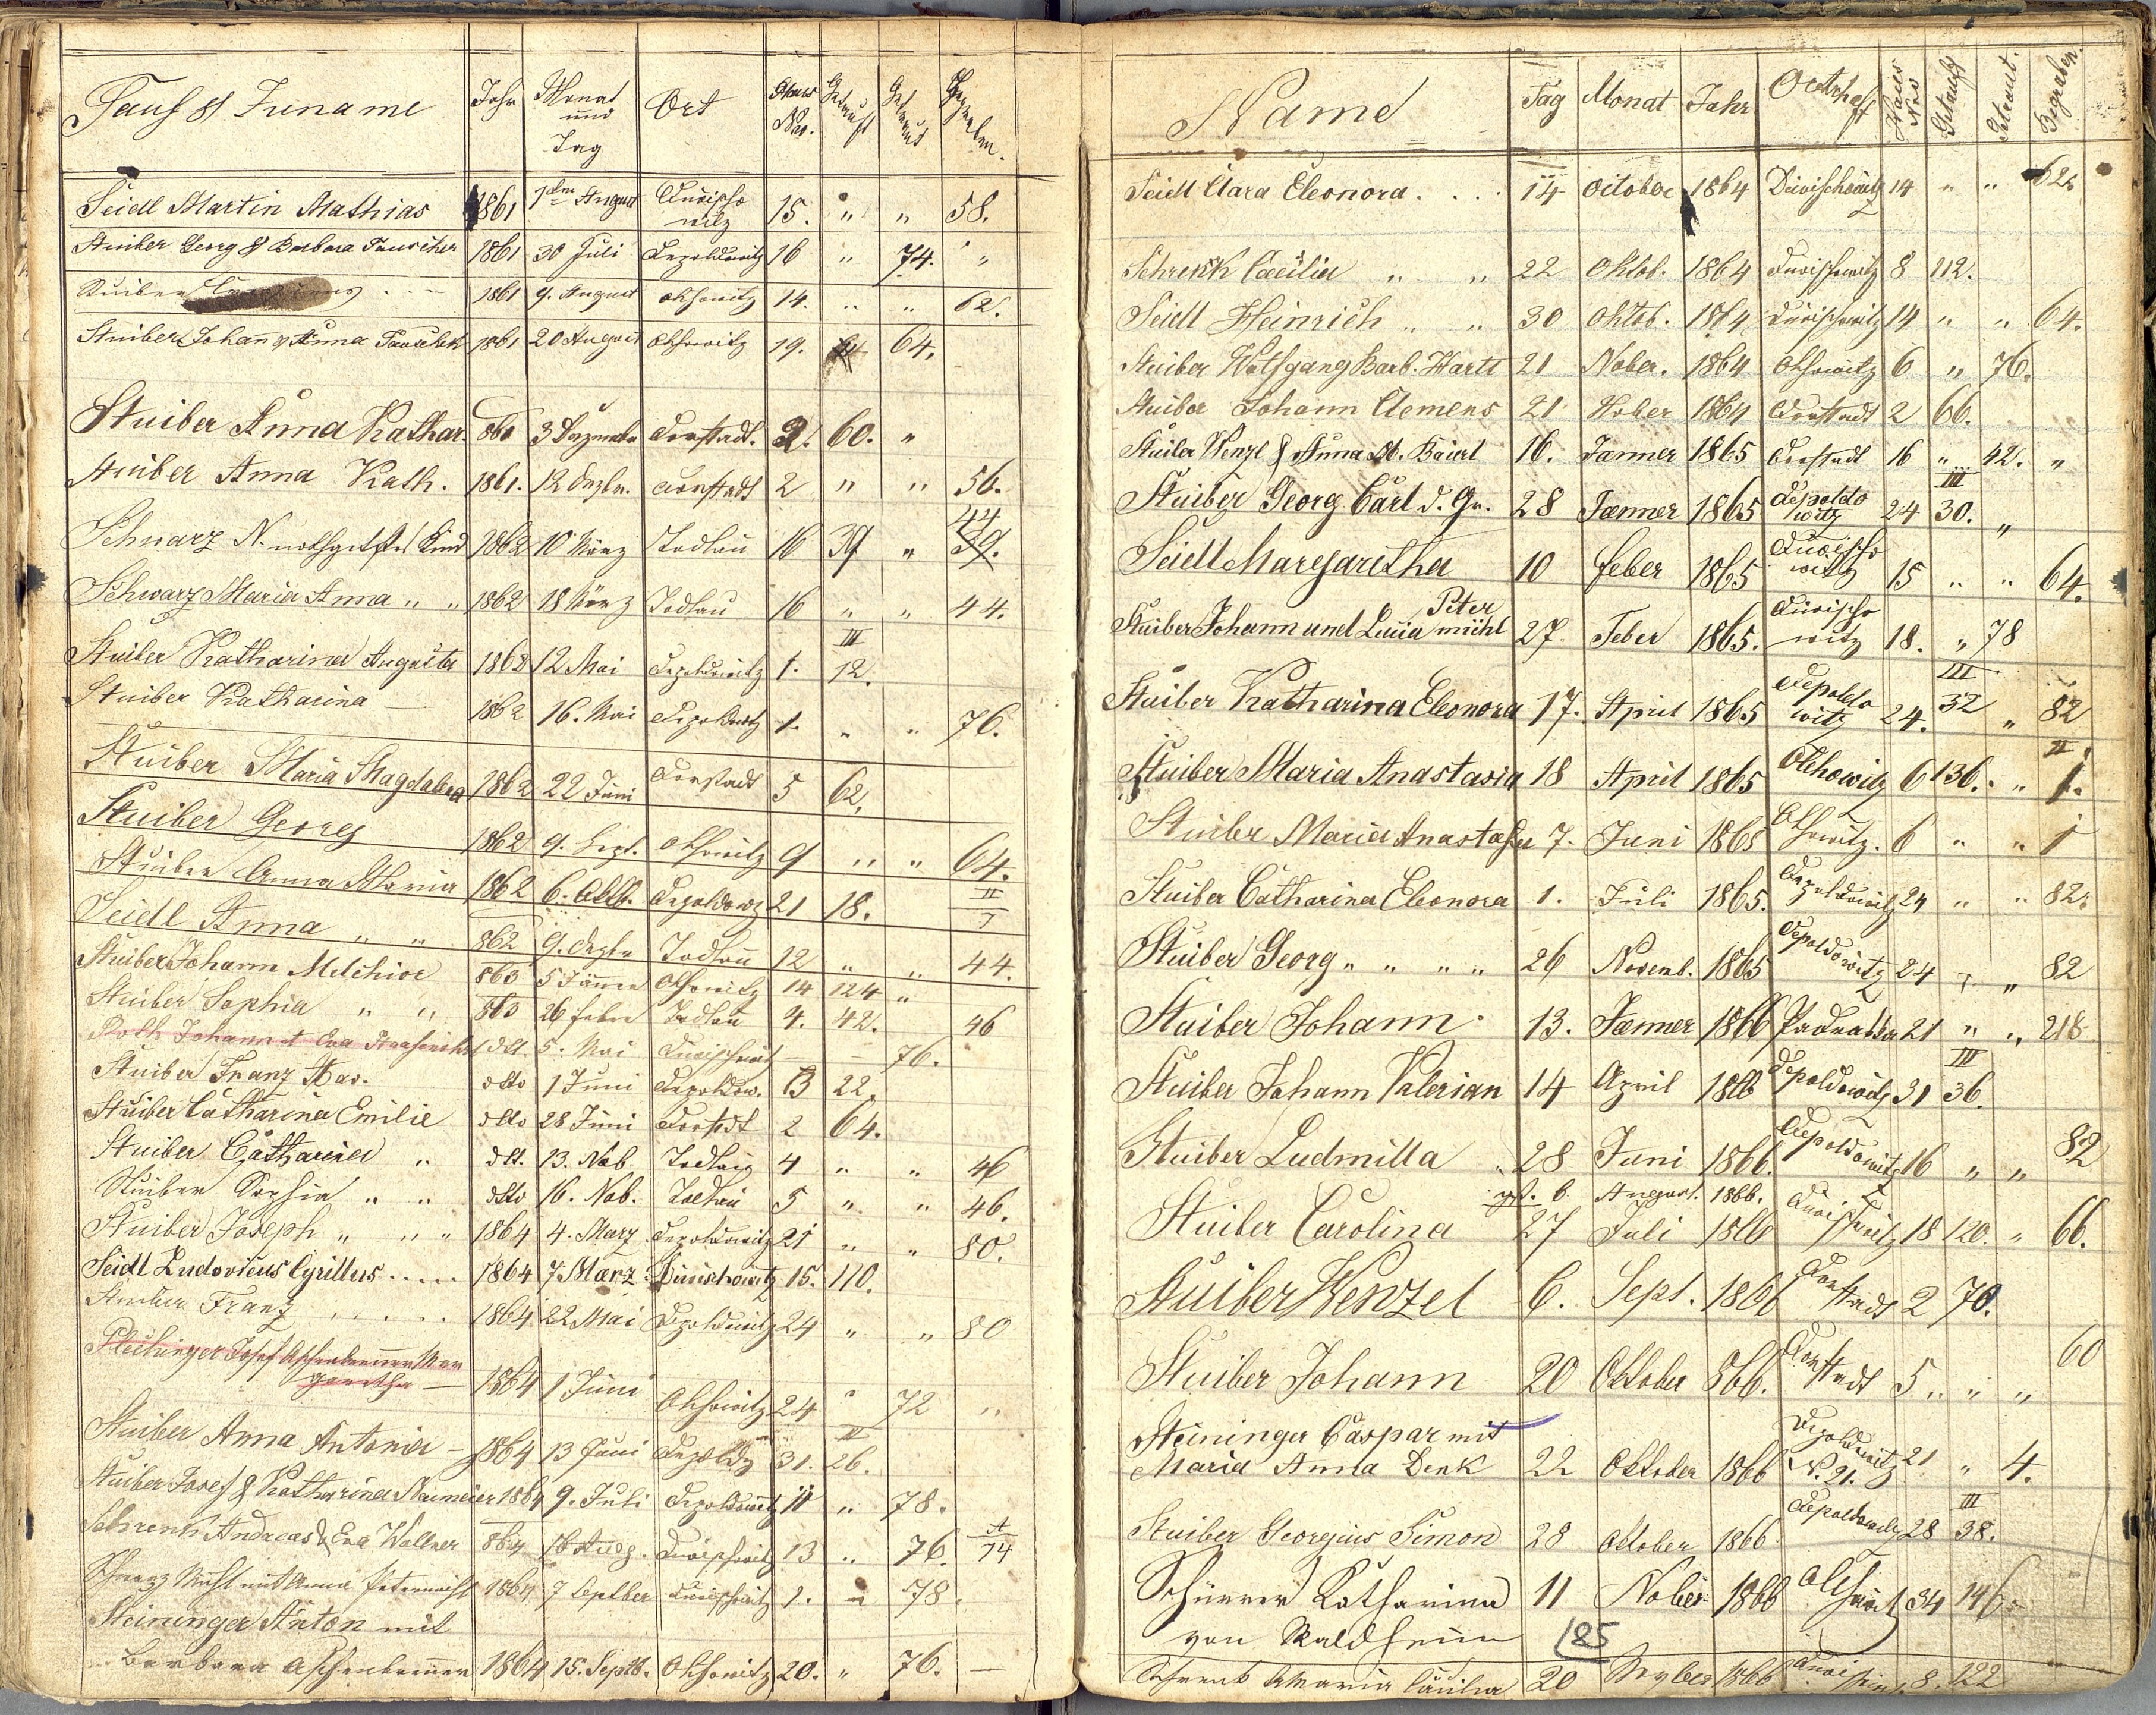 Tauf & Zuname Jahr Monat und Tag Ort Haus Nro. Getauft Getraut Begraben.
Seidl Martin Mathias 1861 1ten August Durischo witz 15. " " 58.
Stuiber Georg & Barbara Tauscher 1861 30 Juli Depoldowitz 16 " 74. "
Stuiber 1861 9. August Othowitz 14. " " 62.
Stuiber Johann & Anna Tauschek 1861 20 August Othowitz 19. 64.
Stuiber Anna Kathar. 861 3 Dezember Dorstadt. 2. 60. "
Stuiber Anna Kath. 1861. 12 Dezbr. Dorstadt 2 " " 56.
Schwarz N. nothgetftes Kind 1862 10 März Todlau 16 39 " 44 39.
Schwarz Maria Anna " " 1862 18 März Todlau 16 " " 44.
Stuiber Katharina Augusta 1862 12 Mai Depoldowitz 1. III 12.
Stuiber Katharina — 1862 16. Mai Depoldowitz 1. " " 76.
Stuiber Maria Magdalena 1862 22 Juni Dorstadt 5 62.
Stuiber Georg 1862 9. Sept. Othowitz 9 " " 64.
Stuiber Anna Maria 1862 6. Oktb. Depoldowz 21 18. II I
Seidl Anna " " 862 9. Dezbr Todlau 12 " " 44.
Stuiber Johann Melchior 863 5 Jänner Othowitz 14 124 "
Stuiber Sophia " " 863 26 feber Todlau 4. 42. 46
Roth Johann et Eva dtt. 5. Mai Durischowitz — — 76.
Stuiber Franz Xav. dtto 1 Juni Depoldow. 13 22.
Stuiber Catharina Emilie dtto 28 Juni Dorstadt 2 64.
Stuiber Catharina " dtt. 13. Nob. Todlau 4 " " 46
Stuiber Sophia " " dtto 16. Nob. Todlau 5 " " 46.
Stuiber Joseph " " " 1864 4. März Depoldowitz 21 " " 80.
Seidl Ludovicus Cyrillus ..... 1864 7. März Durischowitz 15. 110.
Stuiber Franz ..... 1864 22 Mai Depoldowitz 24 " " 80
Plechinger Josef Aschenbrenner Mar
garetha — 1864 1 Juni Othowitz 24 " 72 "
Stuiber Anna Antonia — 1864 13 Juni Depoldz 31. III 26.
Stuiber Josef & Katharina Neumeier 1864 9. Juli Depoldowitz 11 " 78.
Schrenk Andreas & Eva Wallner 864 16 Aug. Durischowitz 13 " 76. 74
1864 7 Septber Durischowitz 1. " 78.
Steininger Anton mit
Barbara Aschenbrenner 1864 15. Septb. Othowitz 20. " 76. —
Name Tag Monat Jahr Ortschaft Haus Nro Getauft Getraut. Begraben.
Seidl Clara Eleonora.... 14 October 1864 Durischowitz 14 " " 62.
Schrenk Cäcilia " " 22 Oktob. 1864 Durischowitz 8 112.
Seidl Heinrich " " 30 Oktob. 1864 Durischowitz 14 " " 64.
Stuiber Wolfgang Barb. Hartl 21 Nober. 1864 Othowitz 6 " 76.
Stuiber Johann Clemens 21 Nober 1864 Dorstadt 2 66.
Stuiber Wenzl & Anna M. Baierl 16. Jänner 1865 Dorstadt 16 " 42. "
Stuiber Georg Carl d. Gr. 28 Jänner 1865 Depoldo witz 24 III 30. "
Seidl Margaritha 10 feber 1865 Durischo witz 15 " " 64.
Stuiber Johann und Luzia Peter mühl 27. Feber 1865. Durischo witz 18. " 78
Stuiber Katharina Eleonora 17. April 1865 Depoldo witz 24. III 32 " 82
Stuiber Maria Anastasia 18 April 1865 Othowitz 6 136. " II 1.
Stuiber Maria Anastasia 7. Juni 1865 Othowitz. 6 " " 1
Stuiber Catharina Eleonora 1. Juli 1865. Depoldowitz 24 " " 82.
Stuiber Georg " " " " 26 Novemb. 1865 Depoldowitz 24 " " 82
Stuiber Johann 13. Jänner 1866 21 " " 218
Stuiber Johann Valerian 14 April 1866 Depoldowitz 31 III 36.
Stuiber Ludmilla " 28 Juni 1866. Depoldowitz 16 " " 82
gst. 6. August. 1866.
Stuiber Carolina 27 Juli 1866 Durischowitz 18 120. " 66.
Stuiber Wenzel 6. Sept. 1866 Dorstadt 2 70.
Stuiber Johann 20 Oktober 866. Dorstadt 5 " " " 60
Steininger Caspar mit
Maria Anna Denk 22 Oktober 1866 Depoldowitz N. 21. 21 " 4.
Stuiber Georgius Simon 28 October 1866 Depoldowitz 28 III 38.
Schürrer Katharina 11 Nober 1866 Othowitz 34 146.
von Waldheim 185
Schrenk Maria Cäcilia 20 1866 8. 122